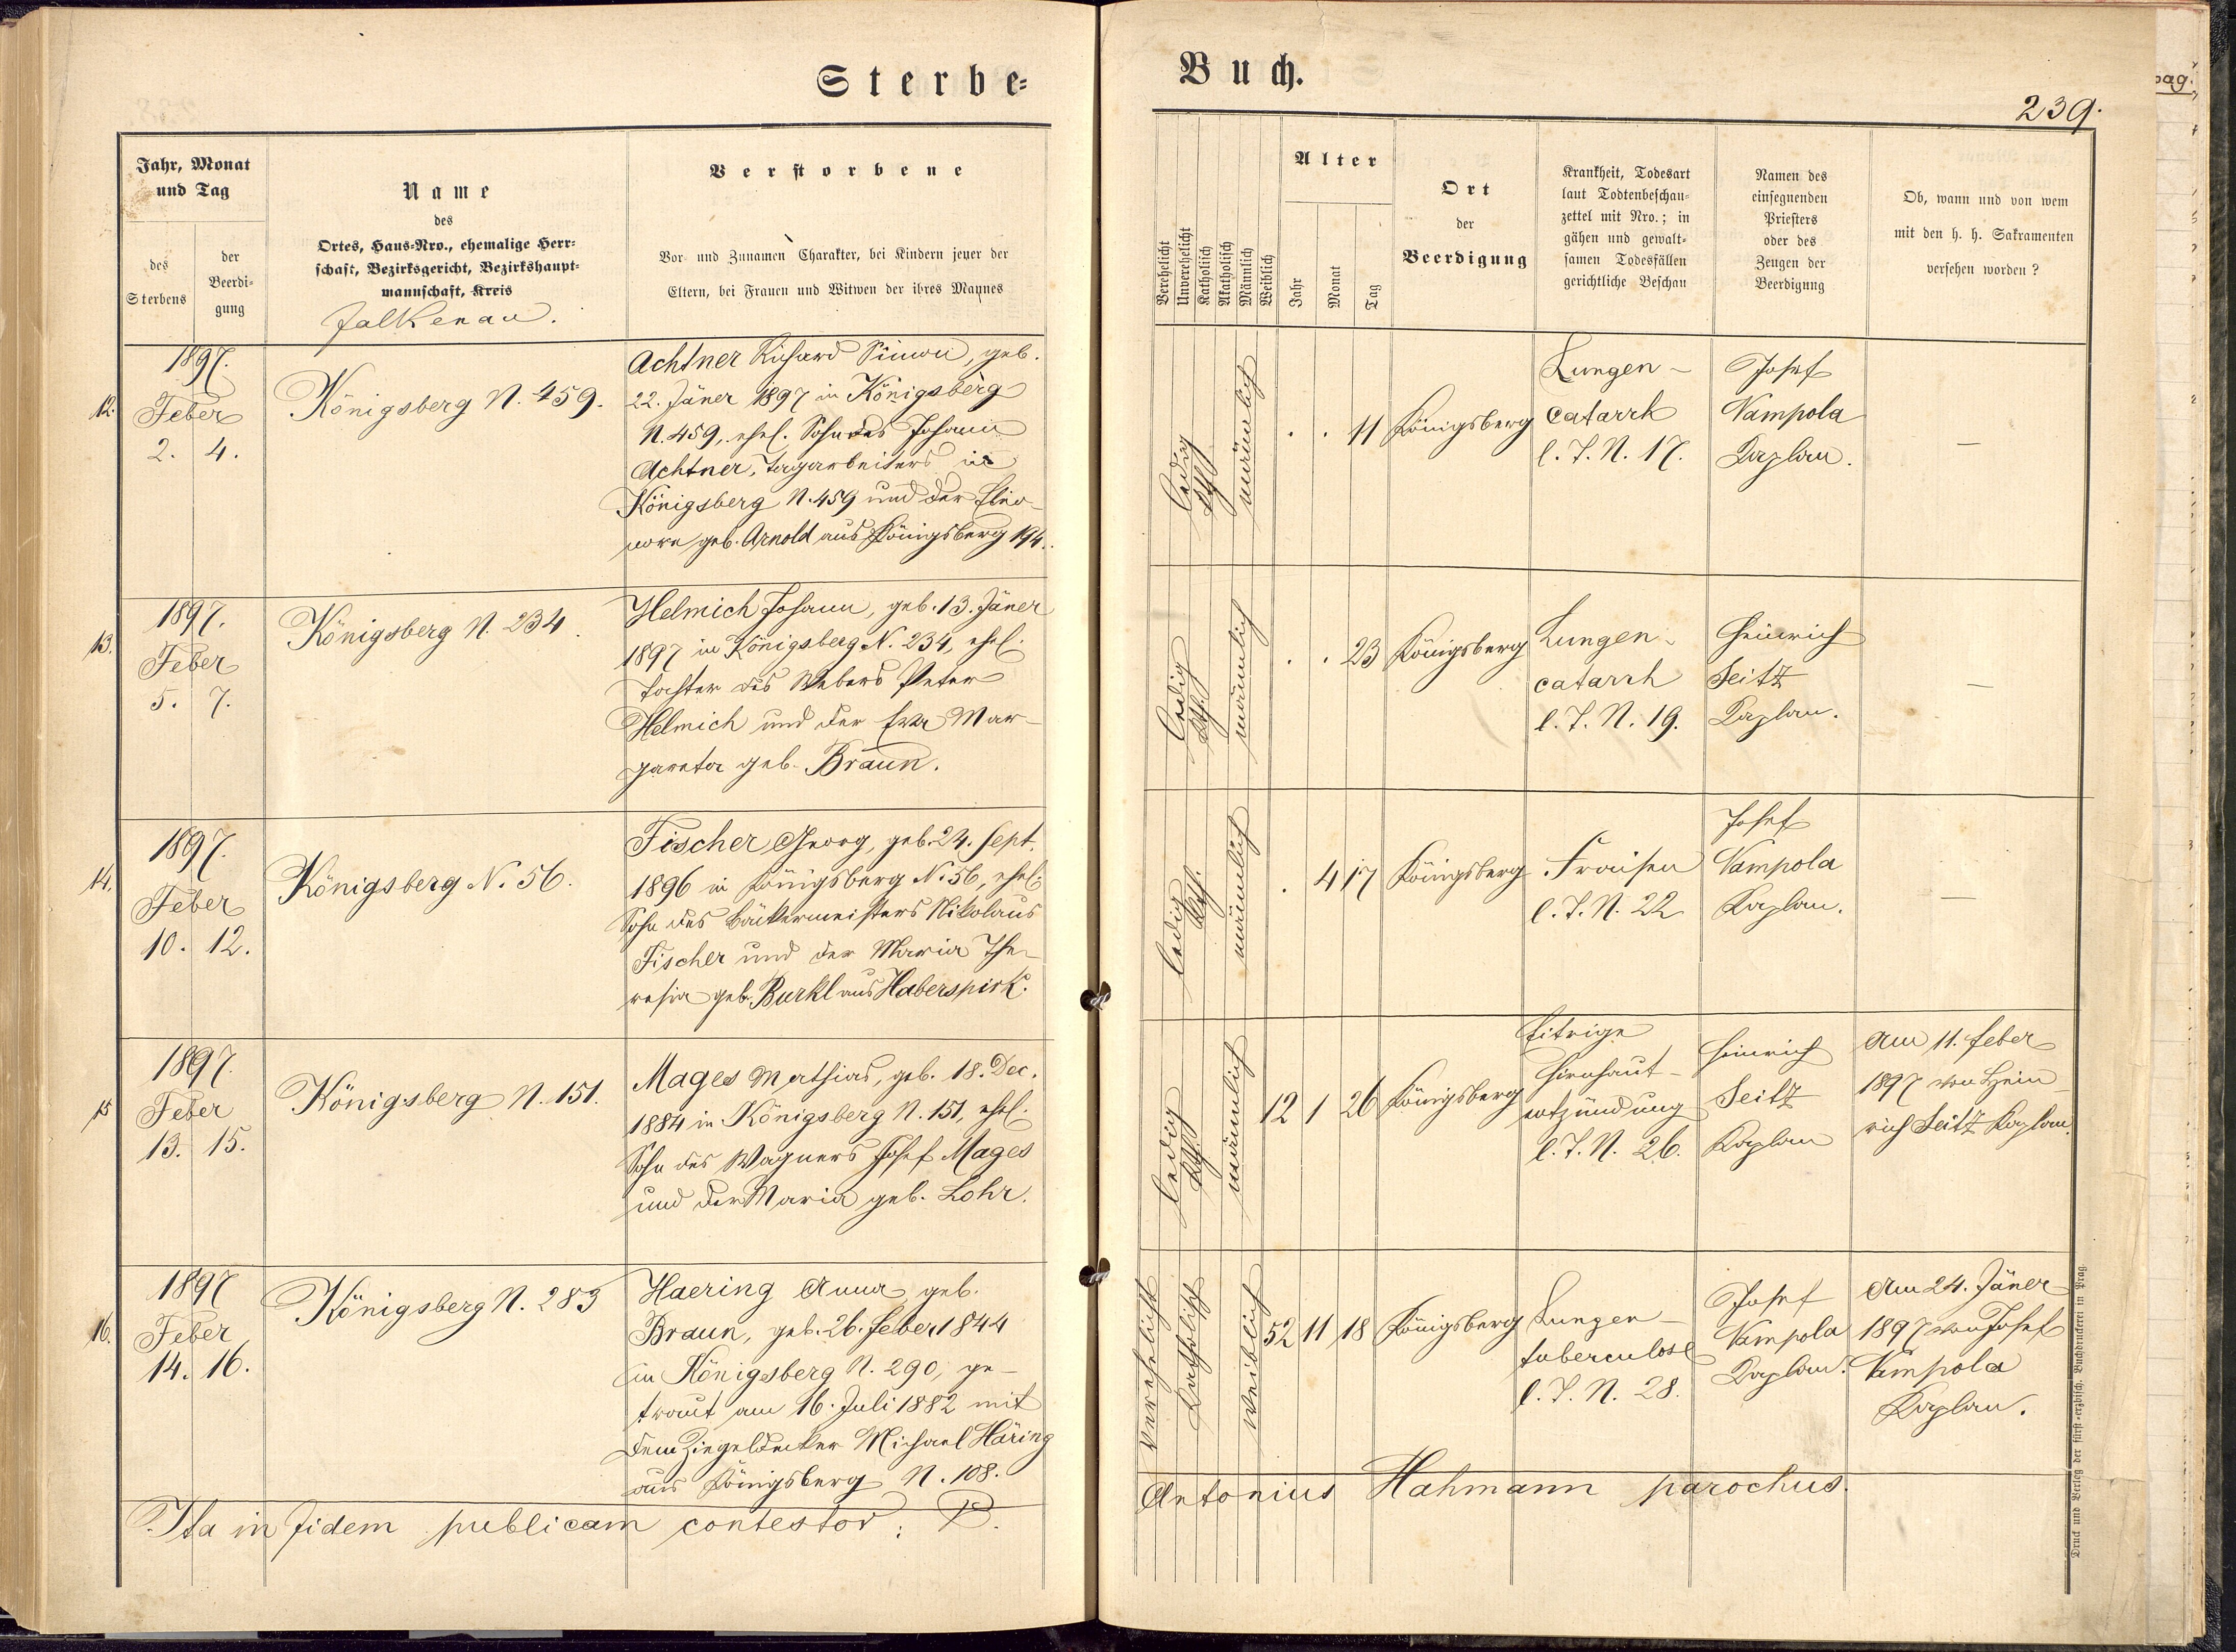 Sterbe-
Jahr, Monat
und Tag
des
Sterbens
der
Beerdi-
gung
Name
des
Ortes, Haus-Nro., ehemalige Herr-
schaft, Bezirksgericht, Bezirkshaupt-
mannschaft, Kreis
Falkenau.
Verstorbene
Vor- und Zunamen Charakter, bei Kindern jener der
Eltern, bei Frauen und Witwen der ihres Mannes
12.
1897.
Feber
2. 4.
Königsberg N. 459.
Achtner Richard Simon, geb.
22. Jäner 1897 in Königsberg
N. 459, ehel. Sohn des Johann
Achtner, Tagarbeiters in
Königsberg N. 459 und der Eleo-
nore geb. Arnold aus Königsberg 194.
13.
1897.
Feber
5. 7.
Königsberg N. 234.
Helmich Johann, geb. 13. Jäner
1897 in Königsberg N. 234, ehel.
Tochter des Webers Peter
Helmich und der Eva Mar-
gareta geb. Braun.
14.
1897.
Feber
10. 12.
Königsberg N. 56.
Fischer Georg, geb. 24. Sept.
1896 in Königsberg N. 56, ehel.
Sohn des Bäckermeisters Nikolaus
Fischer und der Maria The-
resia geb. Burkl aus Haberspirk.
15
1897.
Feber
13. 15.
Königsberg N. 151.
Mages Mathias, geb. 18. Dec.
1884 in Königsberg N. 151, ehel.
Sohn des Wagners Josef Mages
und der Maria geb. Lohr.
16.
1897
Feber
14. 16.
Königsberg N. 283
Haering Anna geb.
Braun, geb. 26. Feber 1844
in Königsberg N. 290, ge-
traut am 16. Juli 1882 mit
dem Ziegeldecker Michael Häring
aus Königsberg N. 108.
Ita in fidem publicam contestor: P.
Buch.
239.
pag.
Verehelicht
Unverehelicht
Katholisch
Akatholisch
Männlich
Weiblich
Alter
Jahr
Monat
Tag
Ort
der
Beerdigung
Krankheit, Todesart
laut Todtenbeschau-
zettel mit Nro.; in
gähen und gewalt-
samen Todesfällen
gerichtliche Beschau
Namen des
einsegnenden
Priesters
oder des
Zeugen der
Beerdigung
Ob, wann und von wem
mit den h. h. Sakramenten
versehen worden?
ledig
kth.
männlich
. . 11
Königsberg
Lungen-
catarrh
l. T. N. 17.
Josef
Vampola
Kaplan.
—
ledig
kth.
männlich
. . 23
Königsberg
Lungen-
catarrh
l. T. N. 19.
Heinrich
Seitz
Kaplan.
—
ledig
kth.
männlich
. 4 17
Königsberg
Fraisen
l. T. N. 22
Josef
Vampola
Kaplan.
—
ledig
kth.
männlich
12 1 26
Königsberg
Eitrige
Hirnhaut-
entzündung
l. T. N. 26.
Heinrich
Seitz
Kaplan
Am 11. Feber
1897 von Hein-
rich Seitz Kaplan.
verehelicht
katholisch
weiblich
52 11 18
Königsberg
Lungen-
tuberculose
l. T. N. 28.
Josef
Vampola
Kaplan.
Am 24. Jäner
1897 von Josef
Vampola
Kaplan.
Antonius Hahmann parochus.
Druck und Verlag der fürst-erzbisch. Buchdruckerei in Prag.